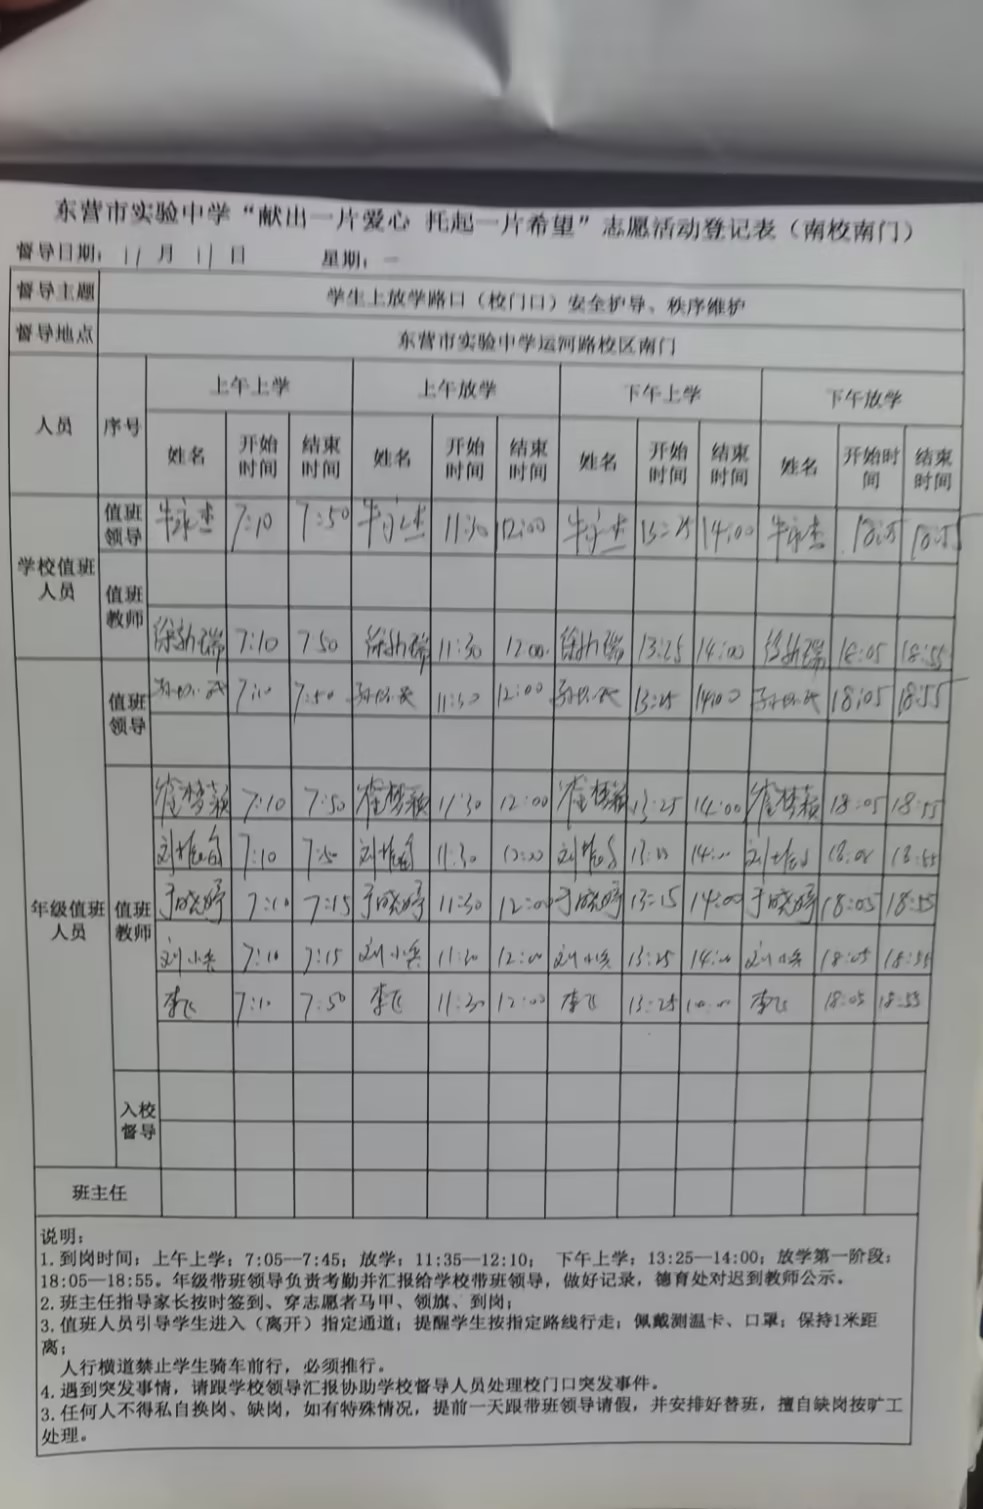 东营市实验中学“献出一片爱心 托起一片希望”志愿活动登记表（南校南门）
督导日期： 11 月 11 日 星期： 一
督导主题 学生上放学路口（校门口）安全护导、秩序维护
督导地点 东营市实验中学运河路校区南门
人员 序号 上午上学 上午放学 下午上学 下午放学
姓名 开始时间 结束时间 姓名 开始时间 结束时间 姓名 开始时间 结束时间 姓名 开始时间 结束时间
学校值班人员 值班领导 牛永杰 7:10 7:50 牛永杰 11:30 12:00 牛永杰 13:25 14:00 牛永杰 18:05 18:55
值班教师
徐新瑞 7:10 7 50 徐新瑞 11:30 12:00 徐新瑞 13:25 14:00 徐新瑞 18:05 18:55
年级值班人员 值班领导 7:10 7:50 11:30 12:00 13:25 14:00 18:05 18:55
值班教师 崔梦颖 7:10 7:50 崔梦颖 11:30 12:00 崔梦颖 13:25 14:00 崔梦颖 18:05 18:55
7:10 7:50 11:30 18:55
于晓婷 7:10 7:15 于晓婷 11:30 12:00 于晓婷 13:15 14:00 于晓婷 18:05 18:55
刘小兵 7:10 7:15 刘小兵 11:30 12:00 刘小兵 13:25 14:00 刘小兵 18:05 18:55
李飞 7:10 7:50 李飞 11:30 12:00 李飞 13:25 李飞 18:05 18:55
入校督导
班主任
说明：
1.到岗时间：上午上学：7:05—7:45；放学：11:35—12:10； 下午上学：13:25—14:00；放学第一阶段：
18:05—18:55。年级带班领导负责考勤并汇报给学校带班领导，做好记录，德育处对迟到教师公示。
2.班主任指导家长按时签到、穿志愿者马甲、领旗、到岗；
3.值班人员引导学生进入（离开）指定通道；提醒学生按指定路线行走；佩戴测温卡、口罩；保持1米距
离；
人行横道禁止学生骑车前行，必须推行。
4.遇到突发事情，请跟学校领导汇报协助学校督导人员处理校门口突发事件。
3.任何人不得私自换岗、缺岗，如有特殊情况，提前一天跟带班领导请假，并安排好替班，擅自缺岗按旷工
处理。